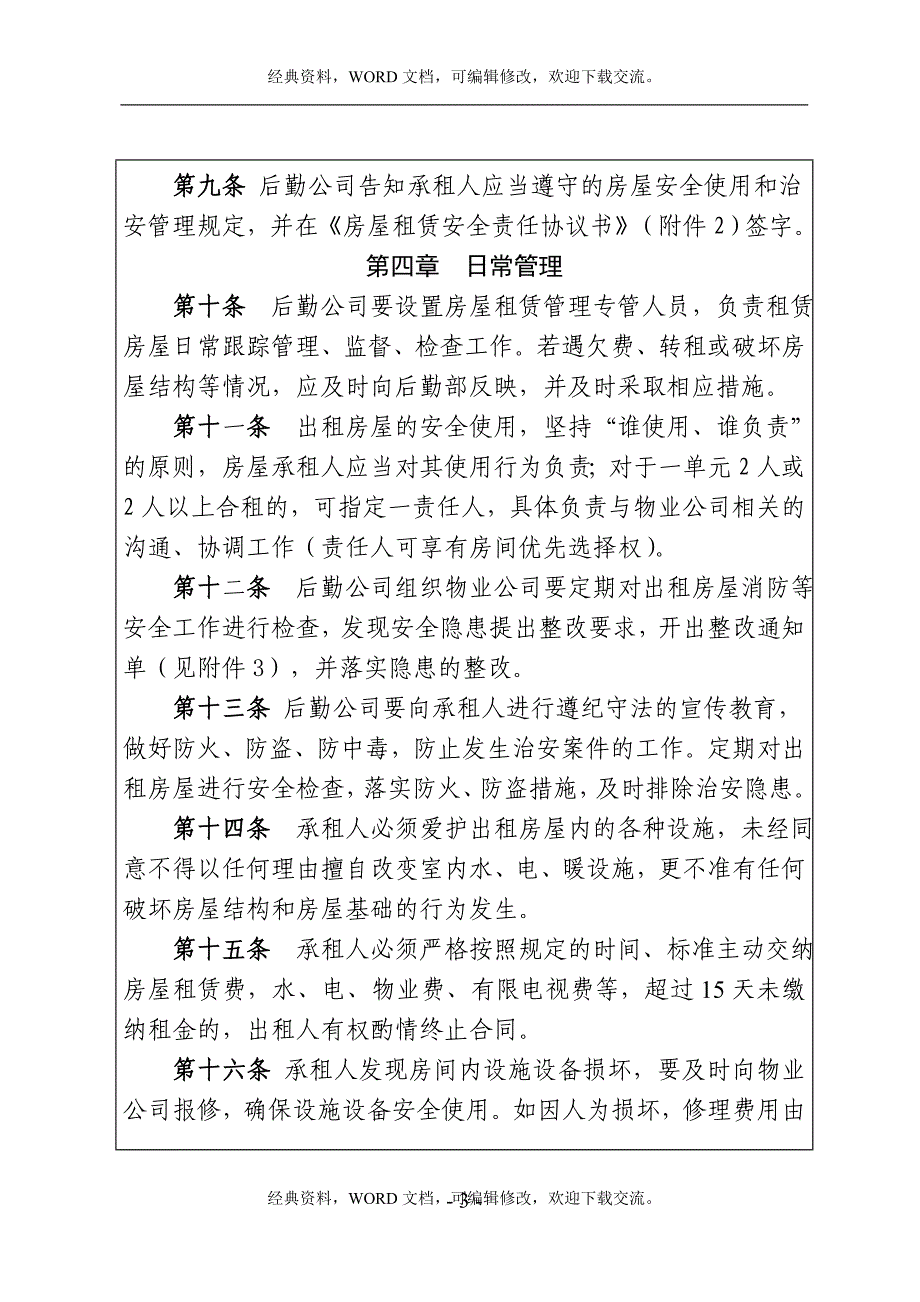 经典资料，WORD 文档，可编辑修改，欢迎下载交流。
第九条 后勤公司告知承租人应当遵守的房屋安全使用和治
安管理规定，并在《房屋租赁安全责任协议书》（附件 2）签字。
第四章　日常管理
第十条　后勤公司要设置房屋租赁管理专管人员，负责租赁
房屋日常跟踪管理、监督、检查工作。若遇欠费、转租或破坏房
屋结构等情况，应及时向后勤部反映，并及时采取相应措施。
第十一条　出租房屋的安全使用，坚持“谁使用、谁负责”
的原则，房屋承租人应当对其使用行为负责；对于一单元 2 人或
2 人以上合租的，可指定一责任人，具体负责与物业公司相关的
沟通、协调工作（责任人可享有房间优先选择权）。
第十二条　后勤公司组织物业公司要定期对出租房屋消防等
安全工作进行检查，发现安全隐患提出整改要求，开出整改通知
单（见附件 3），并落实隐患的整改。
第十三条 后勤公司要向承租人进行遵纪守法的宣传教育，
做好防火、防盗、防中毒，防止发生治安案件的工作。定期对出
租房屋进行安全检查，落实防火、防盗措施，及时排除治安隐患。
第十四条　承租人必须爱护出租房屋内的各种设施，未经同
意不得以任何理由擅自改变室内水、电、暖设施，更不准有任何
破坏房屋结构和房屋基础的行为发生。
第十五条　承租人必须严格按照规定的时间、标准主动交纳
房屋租赁费，水、电、物业费、有限电视费等，超过 15 天未缴
纳租金的，出租人有权酌情终止合同。
第十六条 承租人发现房间内设施设备损坏，要及时向物业
公司报修，确保设施设备安全使用。如因人为损坏，修理费用由
经典资料，WORD 文档，可编辑修改，欢迎下载交流。
- 3 -